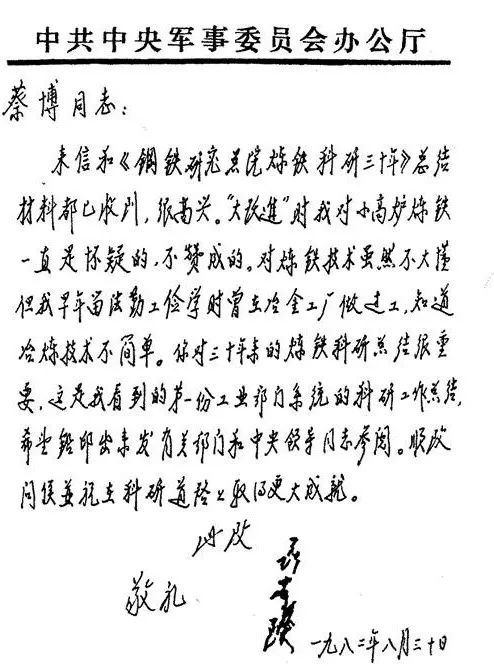 中共中央军事委员会办公厅
蔡博同志：
来信和《钢铁研究总院炼铁科研三十年》总结
材料都已收到，很高兴。“大跃进”时我对小高炉炼铁
一直是怀疑的，不赞成的。对炼铁技术虽然不大懂
但我早年留法勤工俭学时曾在冶金工厂做过工，知道
冶炼技术不简单。你对三十年来的炼铁科研总结很重
要，这是我看到的第一份工业部门系统的科研工作总结，
希望铅印出来发有关部门和中央领导同志参阅。顺致
问候并祝在科研道路上取得更大成就。
此致
敬礼
聂荣臻
一九八二年八月三十日